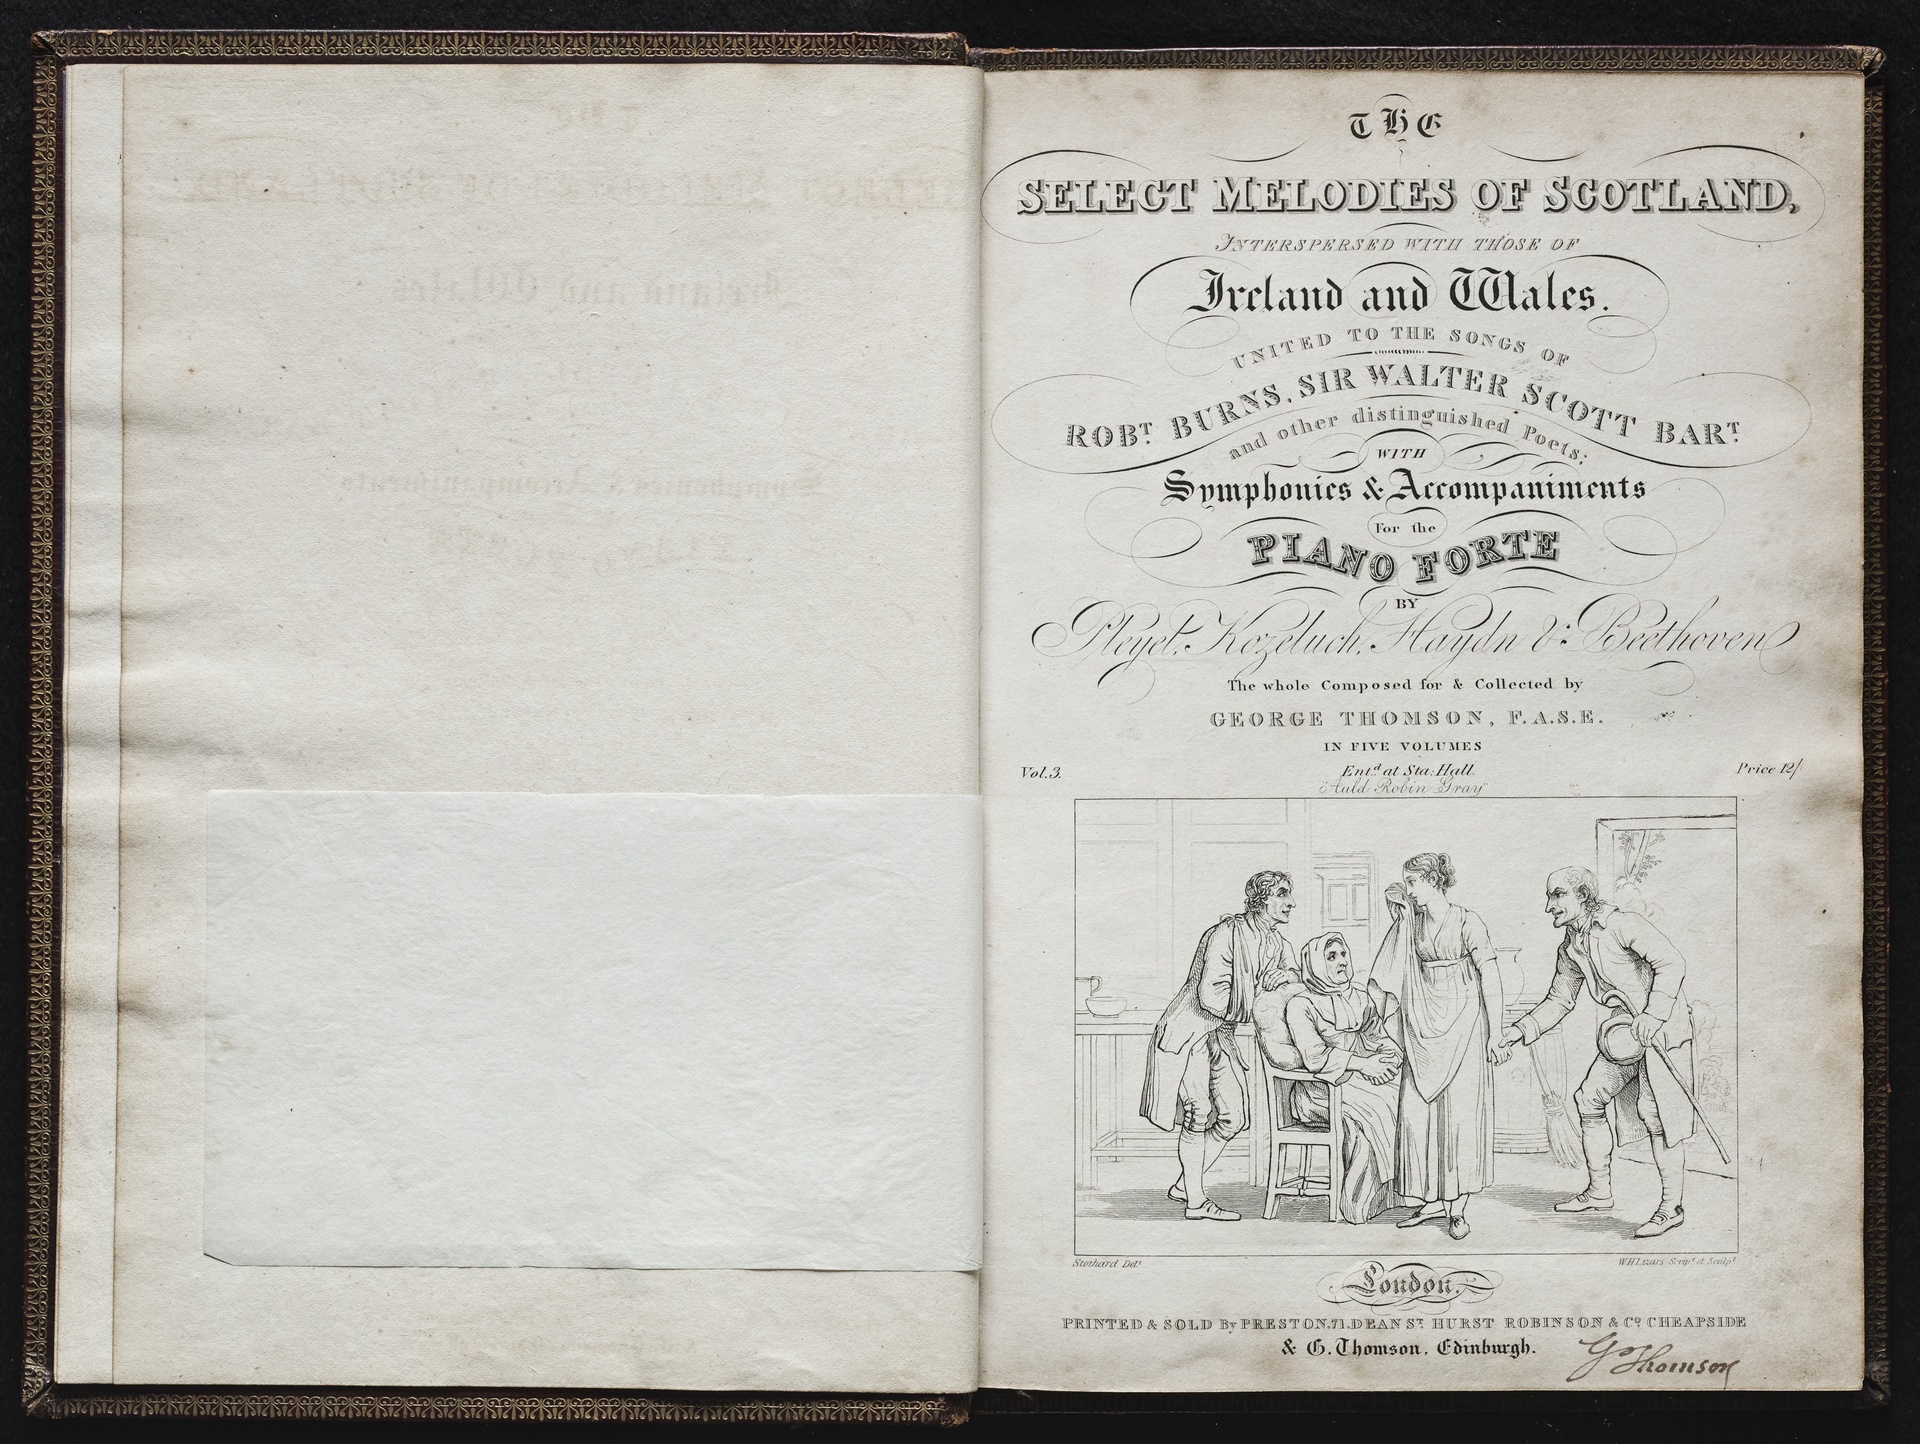 THE
SELECT MELODIES OF SCOTLAND,
INTERSPERSED WITH THOSE OF
Ireland and Wales.
UNITED TO THE SONGS OF
ROBT BURNS, SIR WALTER SCOTT BART
and other distinguished Poets;
WITH
Symphonies & Accompaniments
For the
PIANO FORTE
BY
Pleyel, Kozeluch, Haydn & Beethoven
The whole Composed for & Collected by
GEORGE THOMSON, F.A.S.E.
IN FIVE VOLUMES
Vol. 3. Entd at Sta: Hall. Price 12/
"Auld Robin Gray"
Stothard Delt WHLizars Script et Sculpt
London,
PRINTED & SOLD By PRESTON. 71. DEAN ST HURST ROBINSON & Co CHEAPSIDE
& G. Thomson, Edinburgh.
G Thomson